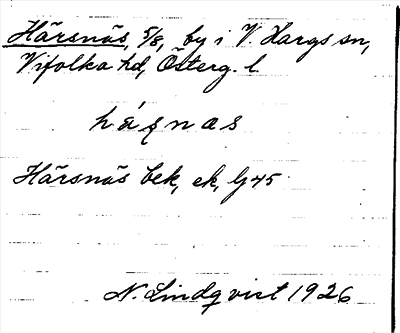 Härsnäs, 5/8, by i V. Hargs sn,
Vifolka hd, Österg. l.
Härsnäs bek, ek, G45
N. Lindqvist 1926